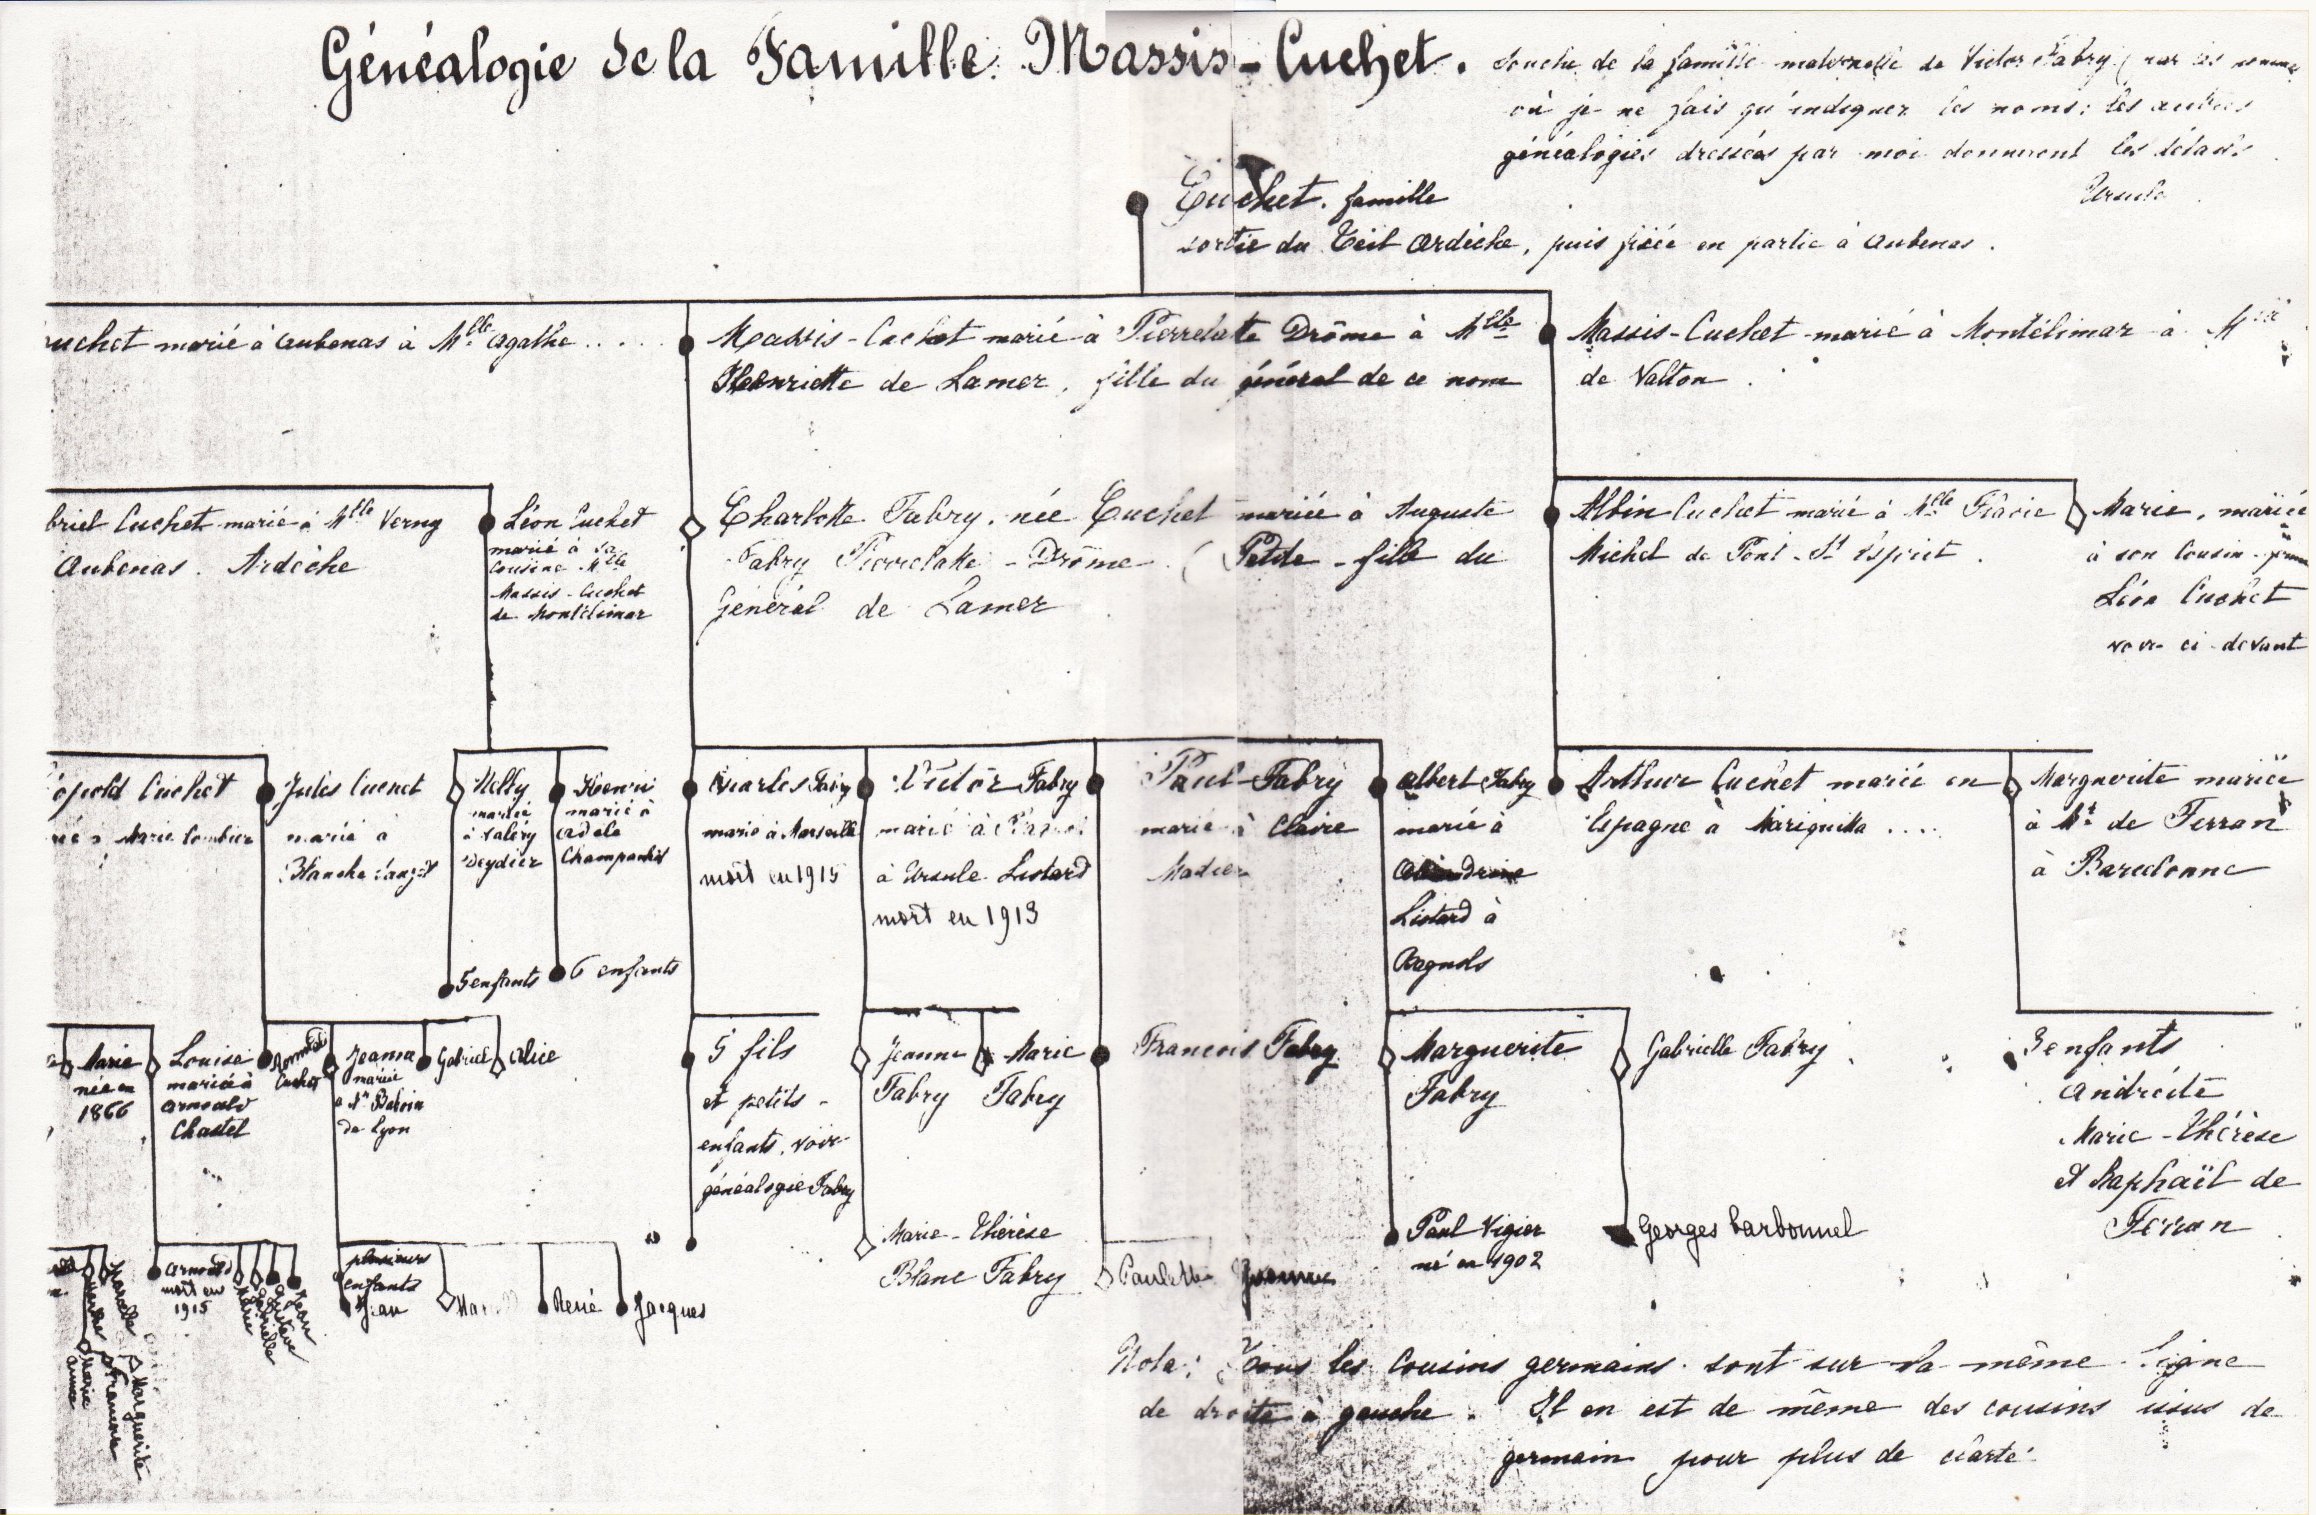 Généalogie de la Famille Massis-Cuchet.
souche de la famille maternelle de Victor Fabry
où je ne fais qu'indiquer les noms; les autres
généalogies dressées par moi donneront les détails
Ursule
Cuchet. famille
sortie du Teil Ardèche, puis fixée en partie à Aubenas.
uchet marié à Aubenas à Mlle Agathe .....
Massis-Cuchet marié à Pierrelatte Drôme à Mlle
Henriette de Lamer, fille du général de ce nom
Massis-Cuchet marié à Montélimar à
de Valton.
briel Cuchet marié à Mlle Verny
Aubenas. Ardèche
Léon Cuchet
marié à sa
cousine Mlle
Massis-Cuchet
de Montélimar
Charlotte Fabry, née Cuchet mariée à Auguste
Fabry Pierrelatte - Drôme. (Petite-fille du
Général de Lamer
Albin Cuchet marié à Mlle Flavie
Michel de Pont-St Esprit.
Marie, mariée
à son cousin
Léon Cuchet
voir ci-devant
opold Cuchet
Marie Combier
Jules Cuchet
marié à
Blanche
Nelly
mariée
à Valéry
Deydier
Henri
marié à
Adèle
5 enfants
6 enfants
Charles Fabry
marié à Marseille
mort en 1915
Victor Fabry
marié à
à Ursule Liotard
mort en 1913
Paul Fabry
marié à Claire
Madier
Albert Fabry
marié à
Liotard à
Bagnols
Arthur Cuchet marié en
Espagne à Mariquita ....
Marguerite mariée
à Mr de Ferran
à Barcelonne
Marie
née en
1866
Louise
mariée à
Arnould
Chastel
Cuchet
Jeanne
mariée
à Mr
de Lyon
Gabriel
Alice
5 fils
et petits-
enfants, voir
généalogie Fabry
Jeanne
Fabry
Marie
Fabry
François Fabry
Marguerite
Fabry
Gabrielle Fabry
3 enfants
Andréïte
Marie-Thérèse
et Raphaël de
Ferran
Marcelle
Marie
Marguerite
Françoise
Arnould
mort en
1915
Marie
Gabrielle
Gustave
Jean
plusieurs
enfants
Jean
René
Jacques
Marie-Thérèse
Blanc Fabry
Paulette
Paul Vigier
né en 1902
Georges Carbonnel
Nota: Tous les cousins germains sont sur la même ligne
de droite à gauche. Il en est de même des cousins issus de
germain pour plus de clarté.